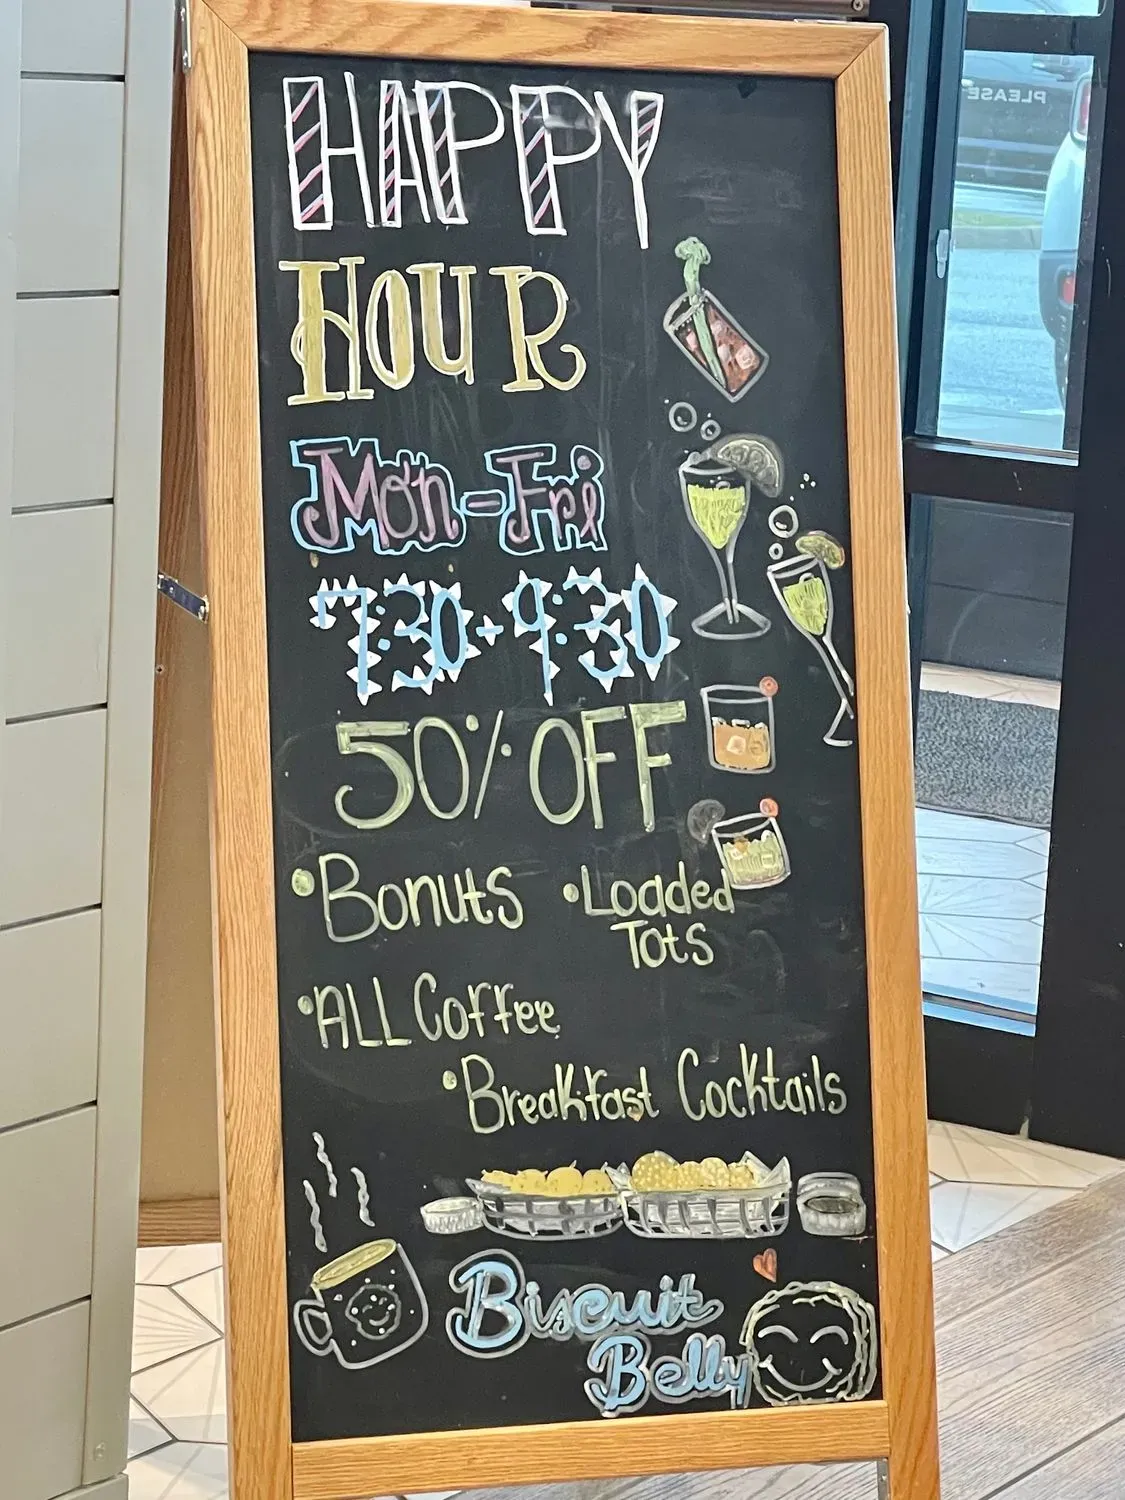 HAPPY
HOUR
Mon-Fri
7:30-9:30
50% OFF
•Bonuts •Loaded
Tots
•ALL Coffee
•Breakfast Cocktails
Biscuit
Belly
PLEASE